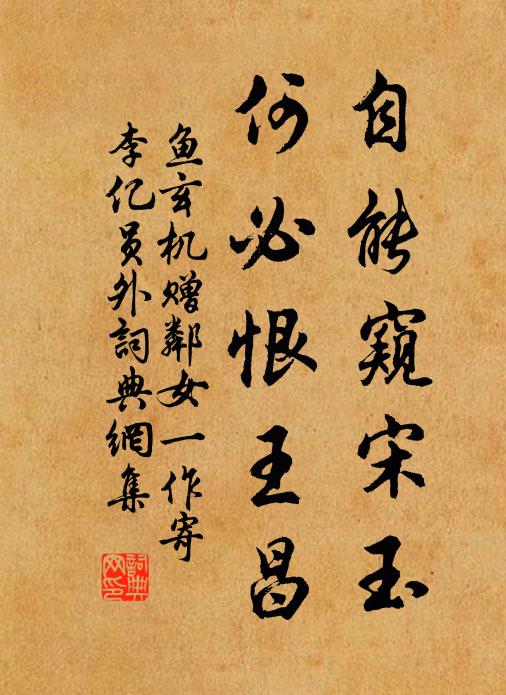 自能窺宋玉
何必恨王昌
鱼玄机赠鄰女一作寄
李亿员外詞典網集
詞典网印